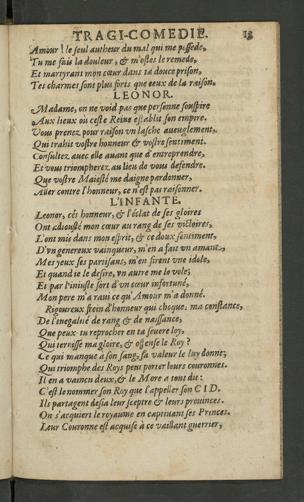 TRAGI-COMEDIE. 13
Amour! le seul autheur du mal qui me possede,
Tu me fais la douleur, & m'ostes le remede,
Et martyrant mon cœur dans ta douce prison,
Tes charmes sont plus forts que ceux de la raison.
LEONOR.
Madame, on ne void pas que personne souspire
Aux lieux où ceste Reine establit son empire.
Vous prenez pour raison vn lasche aueuglement,
Qui trahit vostre honneur & vostre sentiment.
Consultez auec elle auant que d'entreprendre,
Et vous triompherez au lieu de vous defendre.
Que vostre Maiesté me daigne pardonner,
Aller contre l'honneur, ce n'est pas raisonner.
L'INFANTE.
Leonor, cét honneur, & l'éclat de ses gloires
Ont adiousté mon cœur au rang de ses victoires,
L'ont mis dans mon esprit, & ce doux sentiment,
D'vn genereux vainqueur, m'en a fait vn amant,
Mes yeux ses partisans, m'en firent vne idole,
Et quand ie le desire, vn autre me le vole;
Et par l'iniuste sort d'vn cœur infortuné,
Mon pere m'a rauy ce qu'Amour m'a donné.
Rigoureux frein d'honneur qui choque ma constance,
De l'inegalité de rang & de naissance,
Que peux-tu reprocher en ta seuere loy,
Qui ternisse ma gloire, & offense le Roy?
Ce qui manque a son sang, sa valeur le luy donne;
Qui triomphe des Roys peut porter leurs couronnes.
Il en a vaincu deux, & le More a tout dit:
C'est le nommer son Roy que l'appeller son CID.
Ils partagent desia leur sceptre & leurs prouinces.
On s'acquiert le royaume en captiuant ses Princes.
Leur Couronne est acquise à ce vaillant guerrier,